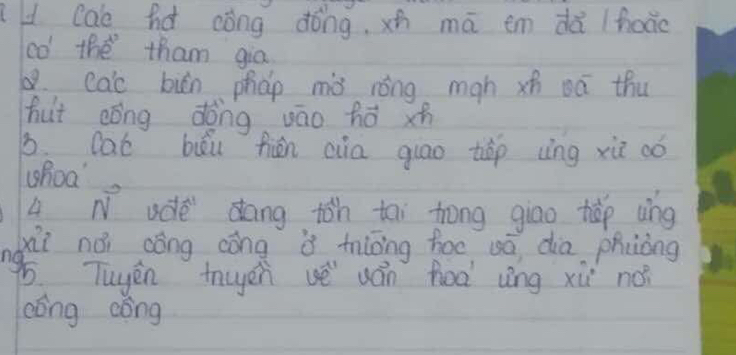 1. Các hđ cộng đồng, xh mà em đã / hoặc
có thể tham gia.
2. Các biện pháp mở rộng mqh xh và thu
hút cộng đồng vào hđ xh
3. Các biểu hiện của giao tiếp ứng xử có
vhoá
4 N~ vđề đang tồn tại trong giao tiếp ứng
xử nơi công cộng ở trường học và địa phương
5. Tuyên truyền về văn hoá ứng xử nơi
công cộng